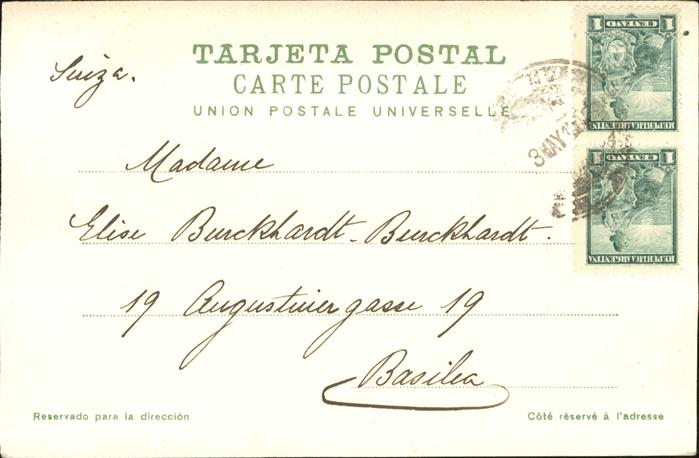 TARJETA POSTAL
Suiza.
CARTE POSTALE
UNION POSTALE UNIVERSELLE
1 CENTAVO 1
REPUBLICA ARGENTINA
3 MAY 1
1 CENTAVO 1
REPUBLICA ARGENTINA
Madame
Elise Burckhardt-Burckhardt.
19 Augustinergasse 19
Basilea
Reservado para la dirección
Côté réservé à l'adresse